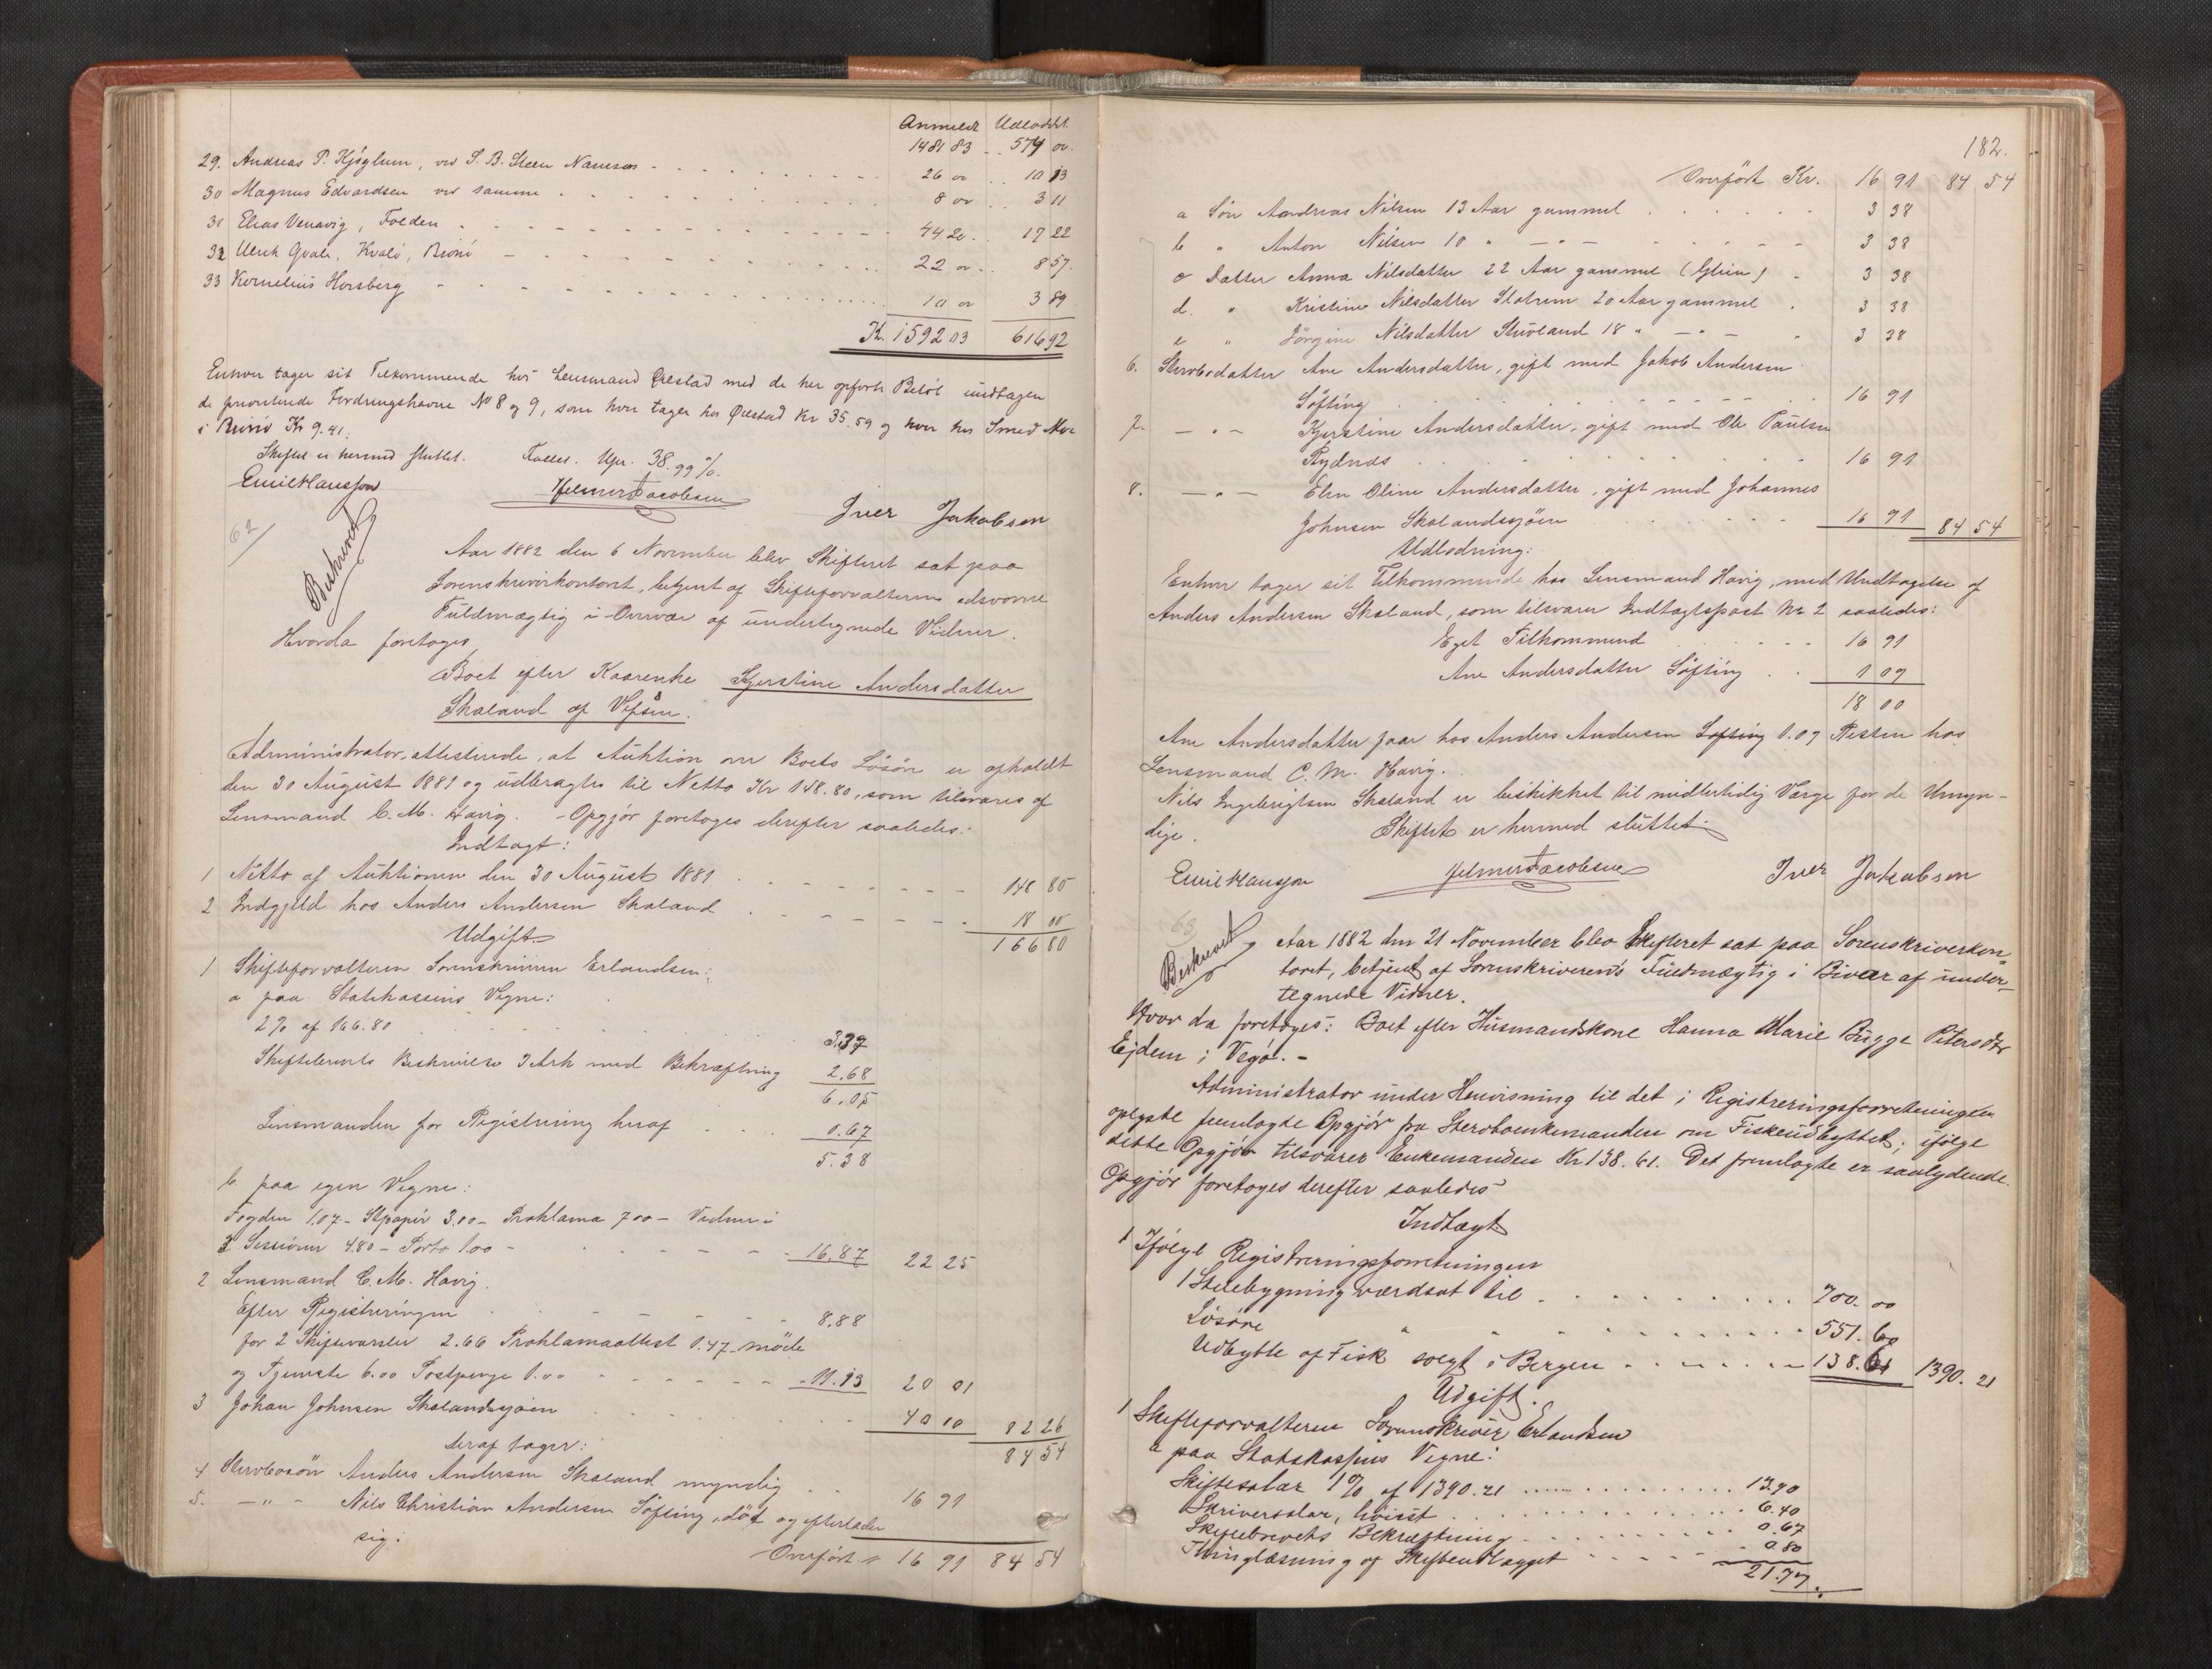 Anmeldt Udloddet.
1481 83 574 00.
29. Andreas P. Kjöglum, ved S. B. Steen Namsos 26 00 10 13
30 Magnus Edvardsen ved samme 8 00 3 11
31 Elias Venavig, Folden 44 20 17 22
32 Ulrik Gvale, Kvalö, Brönö 22 00 8 57.
33 Kornelius Horsberg 10 00 3 89
Kr. 1592 03 616 92
Enhver tager sit Tilkommende hos Lensmand Qvestad med de her opførte Beløb undtagen
de prioriterede Fordringshavere No 8 og 9, som hver tager hos Qvestad Kr 35.59 og hver hos Smed Moe
i Brönö Kr 9.41.
Skiftet er hermed sluttet. 38.99 %.
Emil Hansson Helmer Jacobsen Iver Jakobsen
62/
Beskrevet
Aar 1882 den 6 November blev Skifteret sat paa
Sorenskriverkontoret, betjent af Skifteforvalterens edsvorne
Fuldmægtig i Overvær af undertegnede Vidner.
Hvorda foretoges
Boet efter Kaarenke Kjerstine Andersdatter
Skaland af Vefsen.
Administrator attesterede, at Auktion over Boets Lösöre er afholdt
den 30 August 1881 og udbragtes til Netto Kr 148.80, som tilsvares af
Lensmand C. M. Havig. - Opgjör foretoges derefter saaledes:
Indtægt:
1 Netto af Auktionen den 30 August 1881 148 80
2 Indgjeld hos Anders Andersen Skaland 18 00
166 80
Udgift
1 Skifteforvalteren Sorenskriver Erlandsen:
a paa Statskassens Vegne:
2% af 166.80 3.37
Skiftebrevets Beskrivelse 3 Ark med Bekræftning 2.68
6.05
Lensmanden for Registrering heraf 0.67
5.38
b paa egen Vegne:
Fogden 1.07 - Stpapir 3.00 - Proklama 7.00 - Vidner i
3 Sessioner 4.80 - Porto 1.00 - 16.87 22 25
2 Lensmand C. M. Havig.
Efter Registreringen 8.88
for 2 Skiftevarsler 2.66 Proklamaattest 1.47 - møde
og Tjeneste 6.00 Postpenge 1.00 11.13 20 01
3 Johan Johnsen Skalandssjøen 40 00 82 26
84 54
deraf tager:
4 Stervbosön Anders Andersen Skaland myndig 16 91
5. — " — Nils Christian Andersen Söfting, död og efterlader
sig:
Overført " 16 91 84 54
182.
Overført Kr. 16 91 84 54
a Sön Andreas Nilsen 13 Aar gammel 3 38
b " Anton Nilsen 10 " — " — 3 38
c Datter Anna Nilsdatter 22 Aar gammel 3 38
d. " Kristine Nilsdatter 20 Aar gammel 3 38
e " Jörgine Nilsdatter 18 " — " — 3 38
6. Stervbodatter Ane Andersdatter, gift med Jakob Andersen
Söfting 16 91
7. — " — Kjerstine Andersdatter, gift med Ole Paulsen
Rydnæs 16 91
8. — " — Elen Oline Andersdatter, gift med Johannes
Johnsen Skalandssjöen 16 91 84 54
Udlodning:
Enhver tager sit Tilkommende hos Lensmand Havig, med Undtagelse af
Anders Andersen Skaland, som tilsvarer Indtægtspost No 2 saaledes:
Eget Tilkommend 16 91
Ane Andersdatter Söfting 1 09
18 00
Ane Andersdatter faar hos Anders Andersen Söfting 1.09 Resten hos
Lensmand C. M. Havig.
Nils Ingebrigtsen Skaland er beskikket til midlertidig Værge for de Umyn-
dige. Skiftet er hermed sluttet.
Emil Hansson Helmer Jacobsen Iver Jakobsen
63
Beskrevet
Aar 1882 den 21 November blev Skifteret sat paa Sorenskriverkon-
toret, betjent af Sorenskriverens Fuldmægtig i Bivær af under-
tegnede Vidner.
Hvor da foretoges: Boet efter Husmandskone Hanna Marie Bugge Petersdtr
Ejdem i Vegö. -
Administrator under Henvisning til det i Registreringsforretningen
oplyste fremlagde Opgjör fra Stervboenkemanden om Fiskeudbyttet; ifølge
dette Opgjör tilsvarer Enkemanden Kr 138.61. Det fremlagte er saalydende.
Opgjör foretoges derefter saaledes
Indtægt
1 Ifölge Registreringsforretningen
1 Stuebygning værdsat til 700.00
Lösöre " " 551.60
Udbytte af Fisk solgt i Bergen 138.61 1390.21
Udgift.
1 Skifteforvalteren Sorenskriver Erlandsen
a paa Statskassens Vegne:
Skiftesalær 1% af 1390.21 13.90
Skriversalær, høiest 6.40
Skiftebrevets Bekræftning 0.67
Thinglæsning af Skifteudlægget 0.80
21.77.